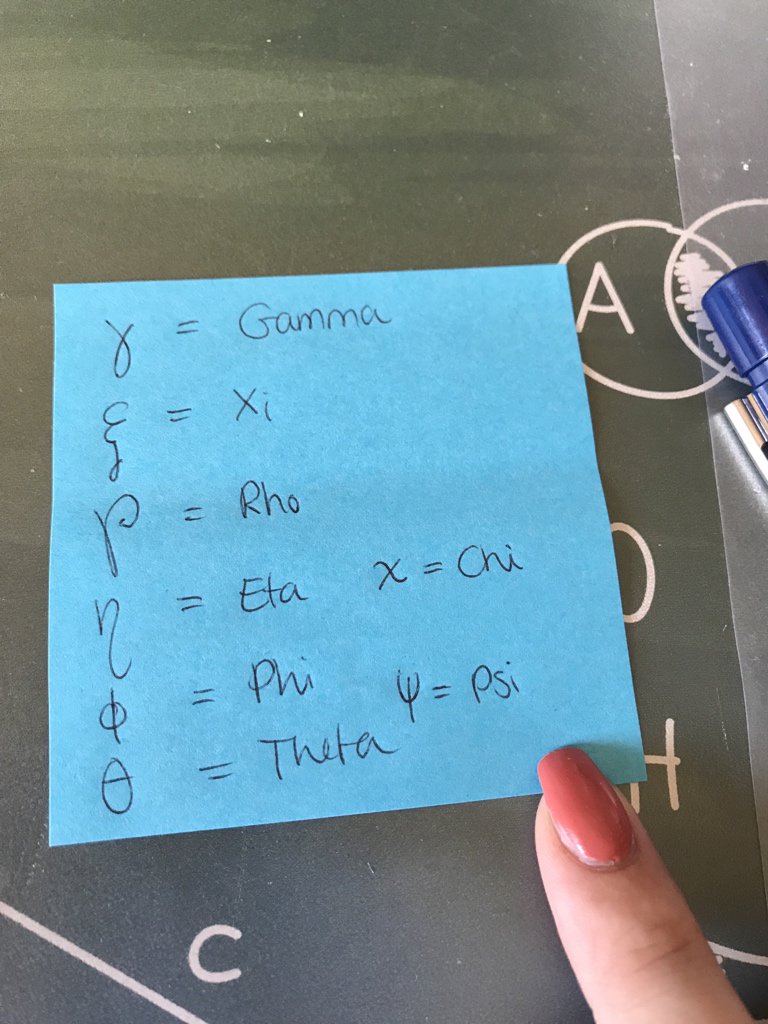 γ = Gamma
A
ξ = Xi
ρ = Rho
η = Eta χ = Chi
ϕ = Phi ψ = Psi
θ = Theta
H
C